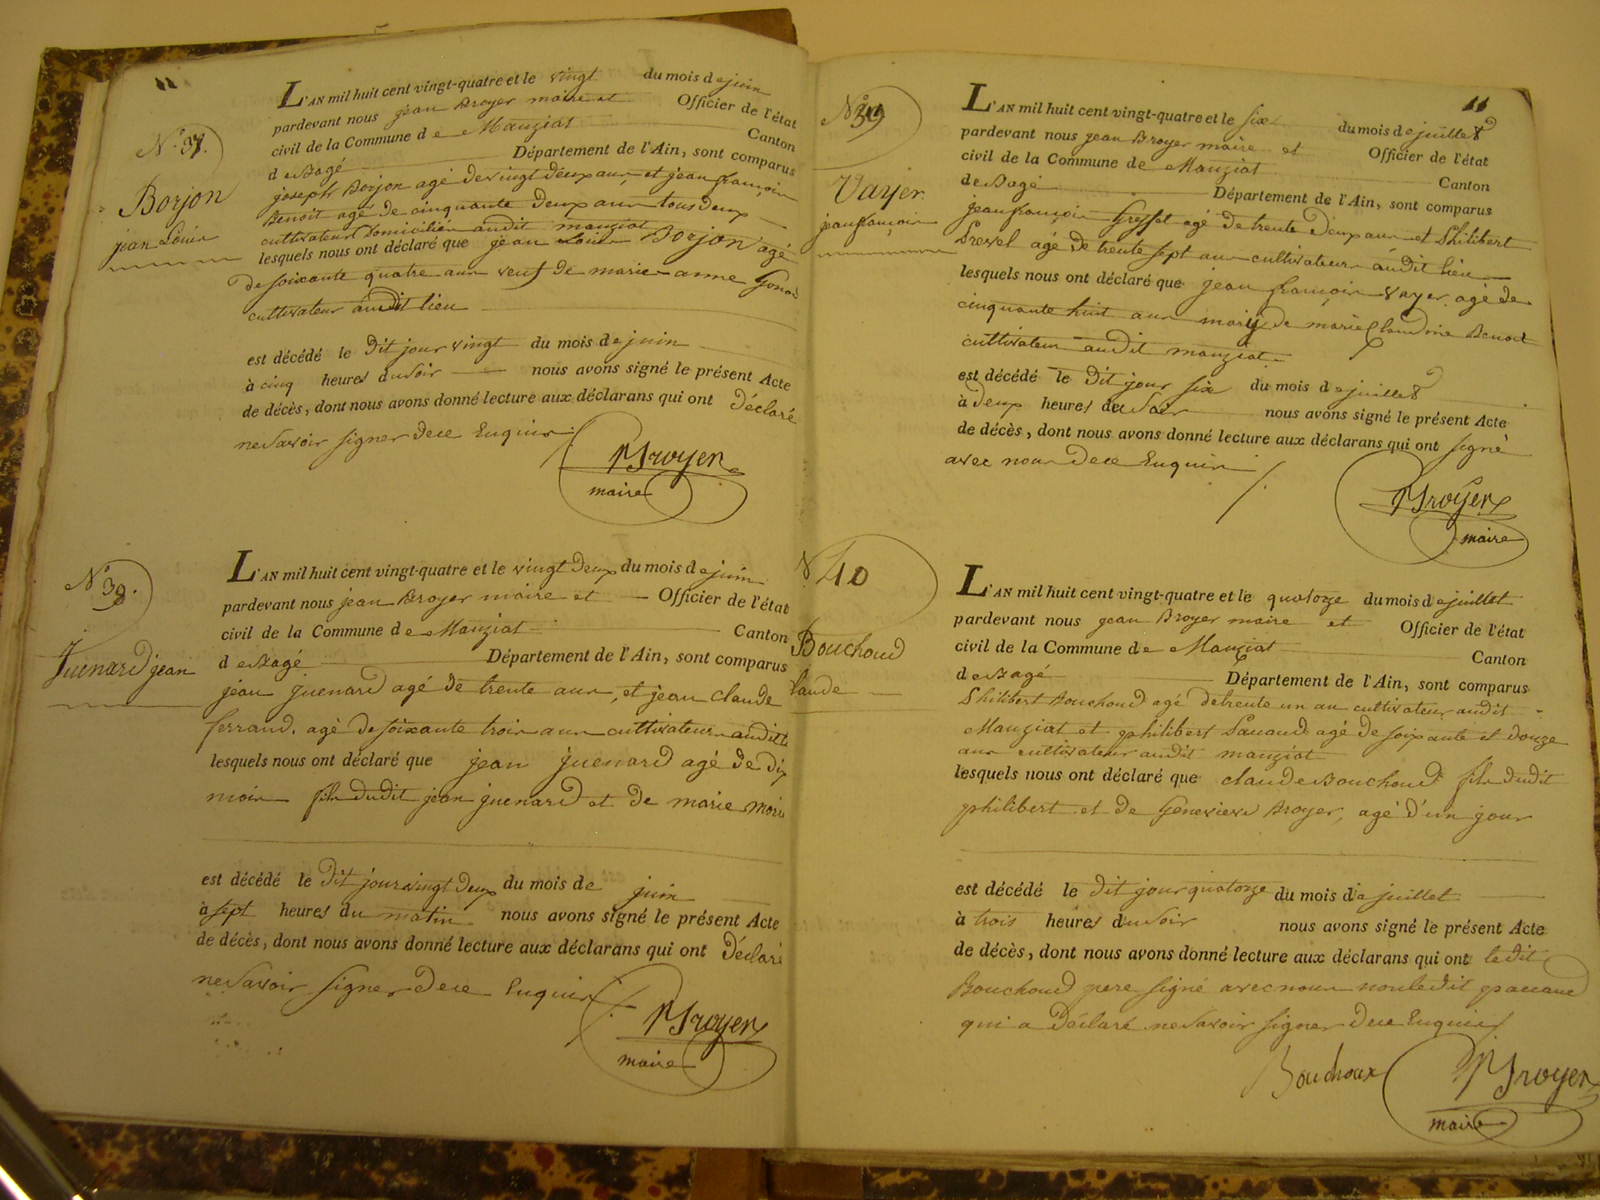 N° 37.
Borjon
jean Louis
L'AN mil huit cent vingt-quatre et le vingt du mois de juin
pardevant nous jean Broyer maire et Officier de l'état
civil de la Commune de Manziat Canton
de Bagé Département de l'Ain, sont comparus
joseph Borjon agé de vingt deux ans, et jean françois
Benoit agé de cinquante deux ans tous deux
cultivateurs domiciliés audit manziat
lesquels nous ont déclaré que jean Louis Borjon agé
de soixante quatre ans veuf de marie anne Gonod
cultivateur audit lieu
est décédé le dit jour vingt du mois de juin
à cinq heures du soir nous avons signé le présent Acte
de décès, dont nous avons donné lecture aux déclarans qui ont déclaré
ne savoir signer de ce Enquis
Broyer
maire
N° 38.
Juenard jean
L'AN mil huit cent vingt-quatre et le vingt deux du mois de juin
pardevant nous jean Broyer maire et Officier de l'état
civil de la Commune de Manziat Canton
de Bagé Département de l'Ain, sont comparus
jean juenard agé de trente ans, et jean claude
ferrand. agé de soixante trois ans cultivateurs audit
lesquels nous ont déclaré que jean juenard agé de dix
mois fils dudit jean juenard et de marie
est décédé le dit jour vingt deux du mois de juin
à sept heures du matin nous avons signé le présent Acte
de décès, dont nous avons donné lecture aux déclarans qui ont déclaré
ne savoir signer de ce Enquis
Broyer
maire
11
N° 39
Vayer
jean françois
L'AN mil huit cent vingt-quatre et le six du mois de juillet
pardevant nous jean Broyer maire et Officier de l'état
civil de la Commune de Manziat Canton
de Bagé Département de l'Ain, sont comparus
jean françois agé de trente deux ans et Philibert
agé de trente sept ans cultivateurs audit lieu
lesquels nous ont déclaré que jean françois Vayer agé de
cinquante huit ans mary de marie Claudine Benoit
cultivateur audit manziat
est décédé le dit jour six du mois de juillet
à deux heures du soir nous avons signé le présent Acte
de décès, dont nous avons donné lecture aux déclarans qui ont signé
avec nous de ce Enquis
Broyer
maire
N° 40
Bouchoud
laude
L'AN mil huit cent vingt-quatre et le quatorze du mois de juillet
pardevant nous jean Broyer maire et Officier de l'état
civil de la Commune de Manziat Canton
de Bagé Département de l'Ain, sont comparus
Philibert Bouchoud agé de trente un an cultivateur audit
Manziat et philibert Pacaud agé de soixante et douze
ans cultivateur audit manziat
lesquels nous ont déclaré que claude Bouchoud fils dudit
philibert et de Genevieve Broyer, agé d'un jour
est décédé le dit jour quatorze du mois de juillet
à trois heures du soir nous avons signé le présent Acte
de décès, dont nous avons donné lecture aux déclarans qui ont ledit
Bouchoud pere signé avec nous non ledit pacaud
qui a déclaré ne savoir signer de ce Enquis
Bouchoux
Broyer
maire